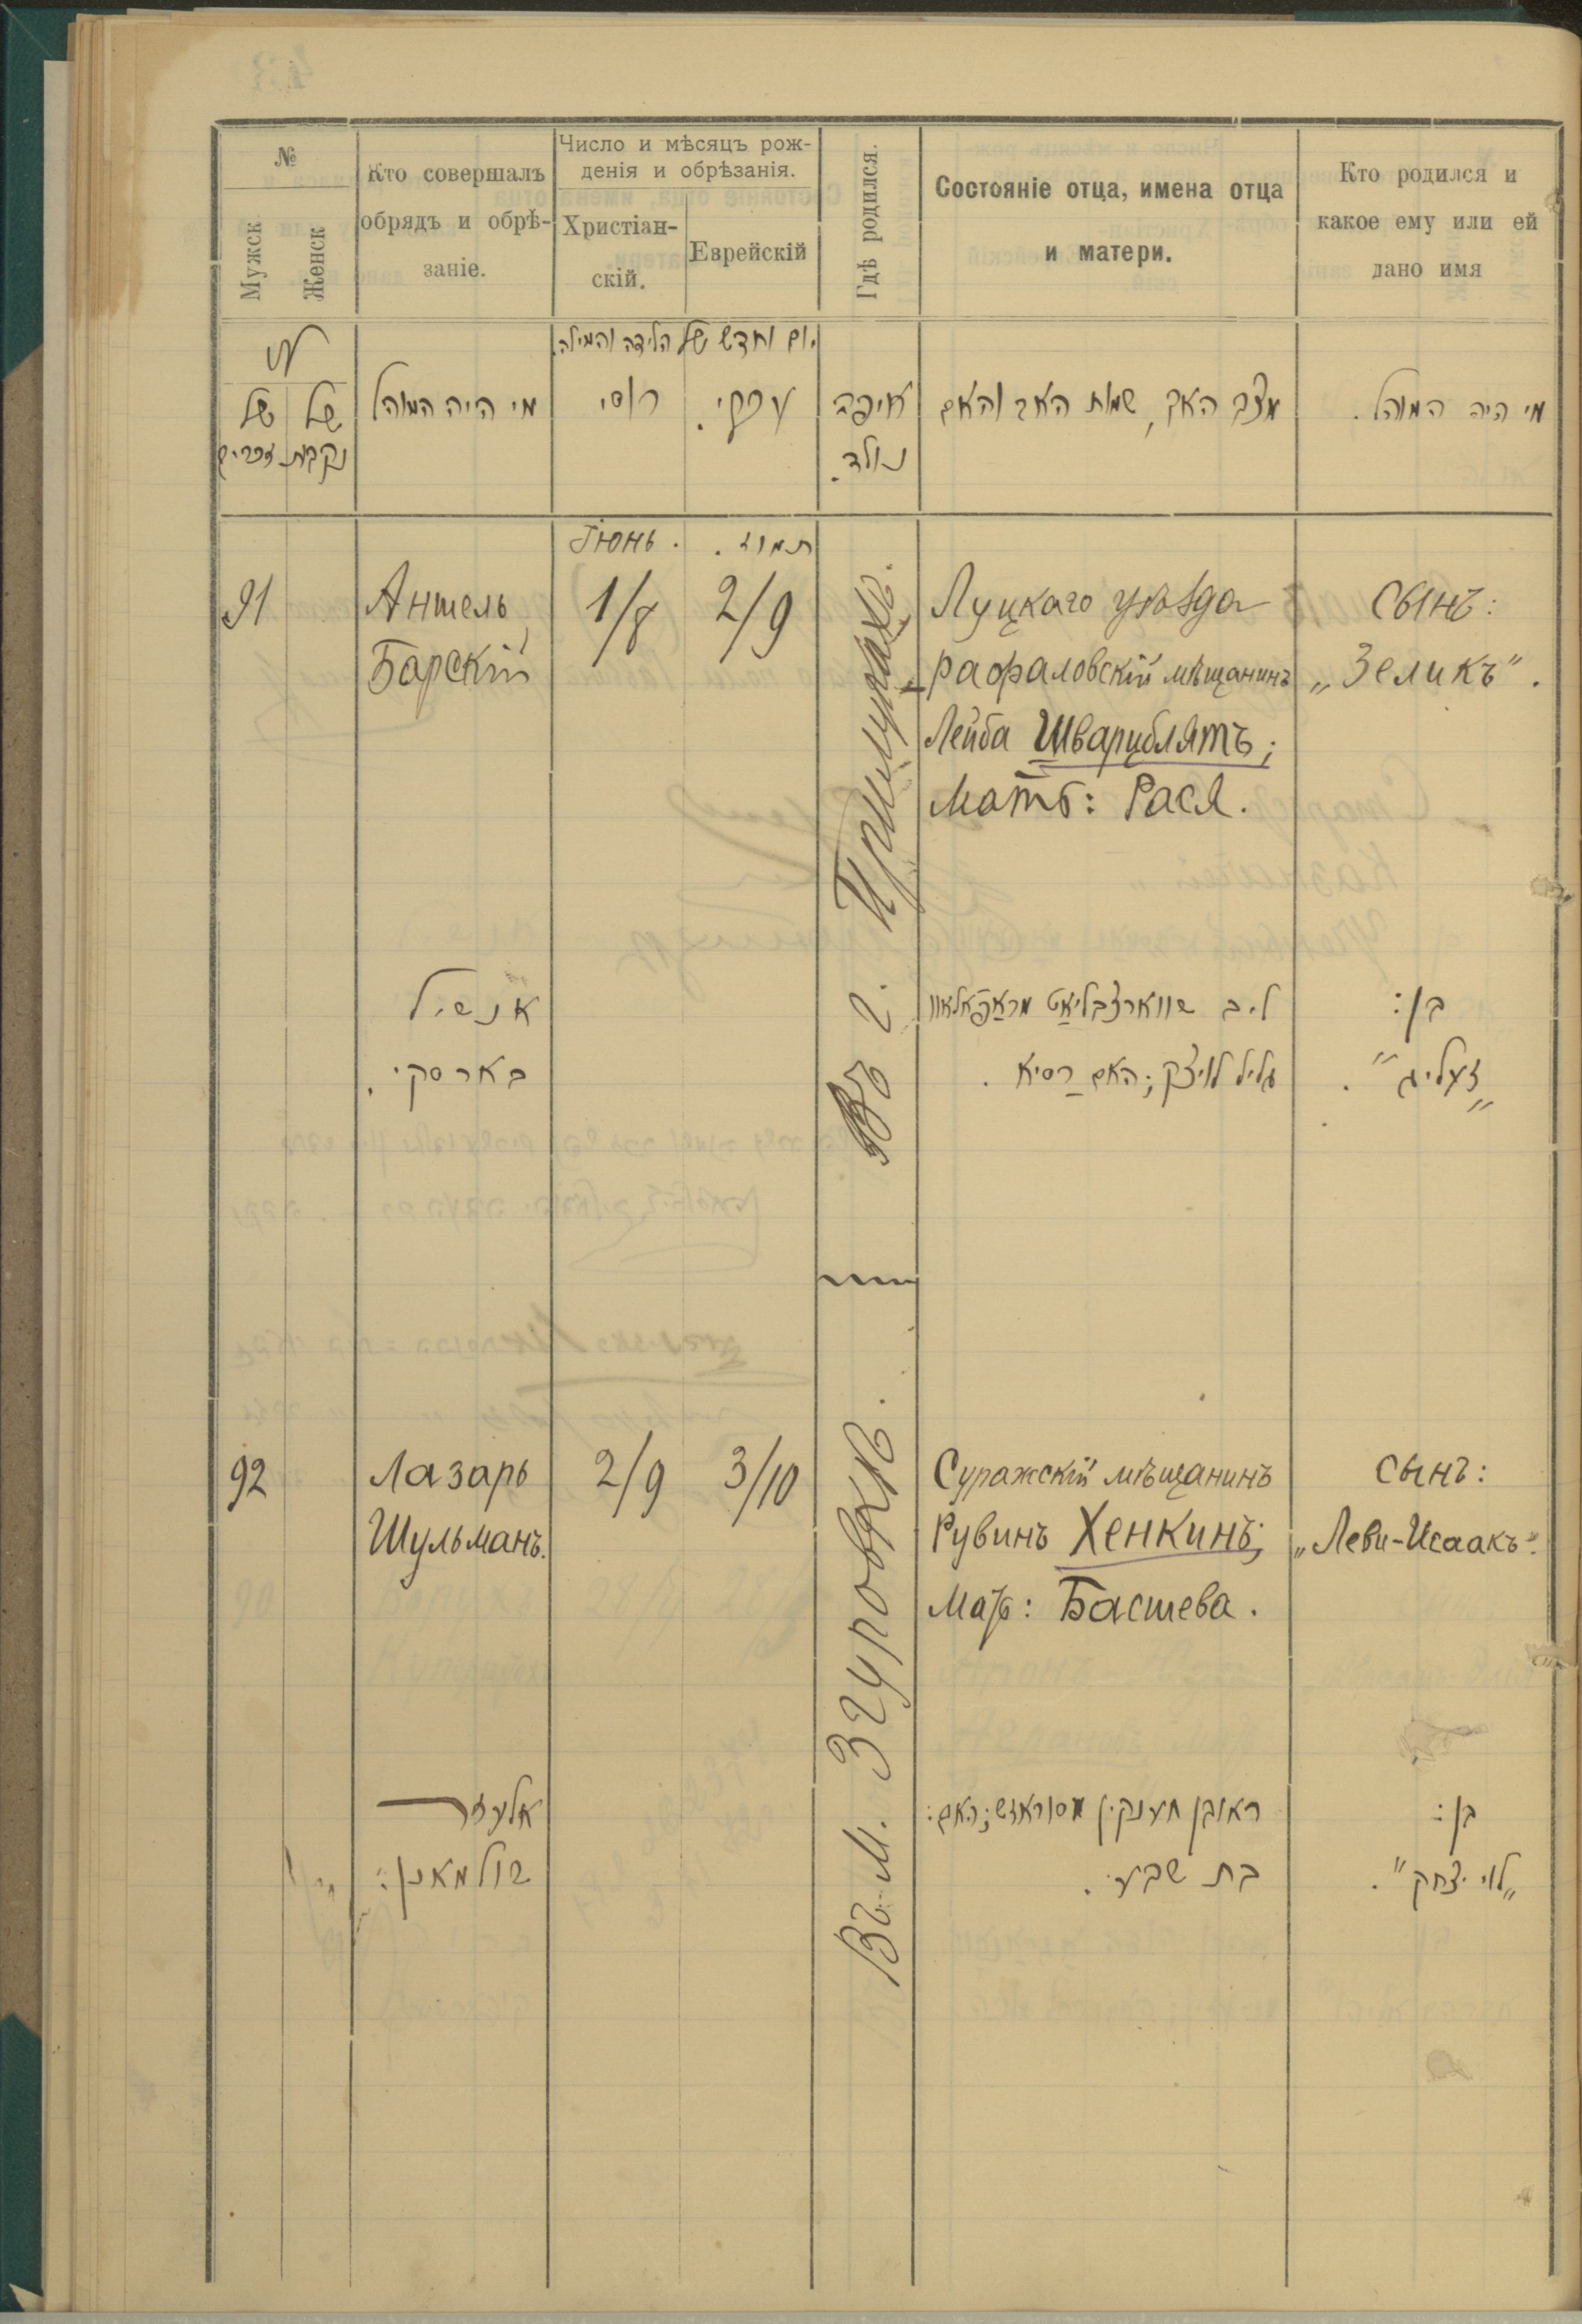 №
Мужск
Женск
Кто совершалъ
обрядъ и обрѣ-
заніе.
Число и мѣсяцъ рож-
денія и обрѣзанія.
Христіан-
скій.
Еврейскій
Гдѣ родился.
Состояніе отца, имена отца
и матери.
Кто родился и
какое ему или ей
дано имя
יום וחדש של הלידה והמילה.
№
של
של
נקבות
זכרים
מי היה המוהל
רוסי
עברי.
איפה
נולד.
מצב האב, שמות האב והאם
מי היה המוהל.
Іюнь.
תמוז.
91
Аншель
Барскій
1/8
2/9
Въ г. Прилукахъ.
Луцкаго уѣзда
Рафаловскій мѣщанинъ
Лейба Шварцблятъ;
Мать: Рася.
Сынъ:
„Зеликъ".
אנשיל
בארסקי.
ליב שווארצבליאט מראפאלאוו
גליל לויצק; האם רסיא.
בן:
„זעליג".
92
Лазарь
Шульманъ.
2/9
3/10
Въ м. Згуровкѣ.
Суражскій мѣщанинъ
Рувинъ Хенкинъ;
Мать: Басшева.
Сынъ:
„Леви-Исаакъ".
אלעזר
שולמאן:
ראובן חענקין מסוראזש; האם:
בת שבע.
בן:
„לוי יצחק".